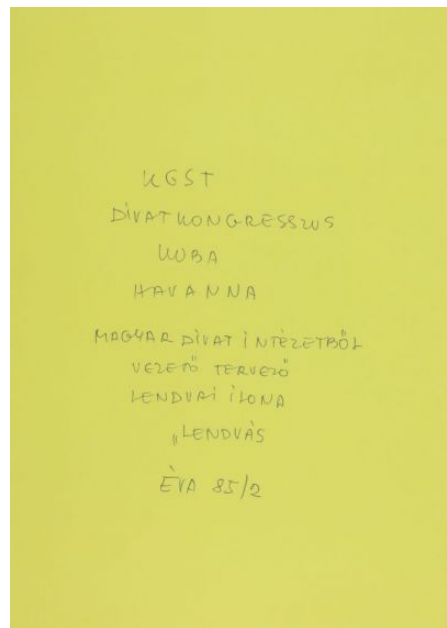 KGST
DIVATKONGRESSZUS
KUBA
HAVANNA
MAGYAR DIVAT INTÉZETBŐL
VEZETŐ TERVEZŐ
LENDVAI ILONA
„LENDVÁS
ÉVA 85/2